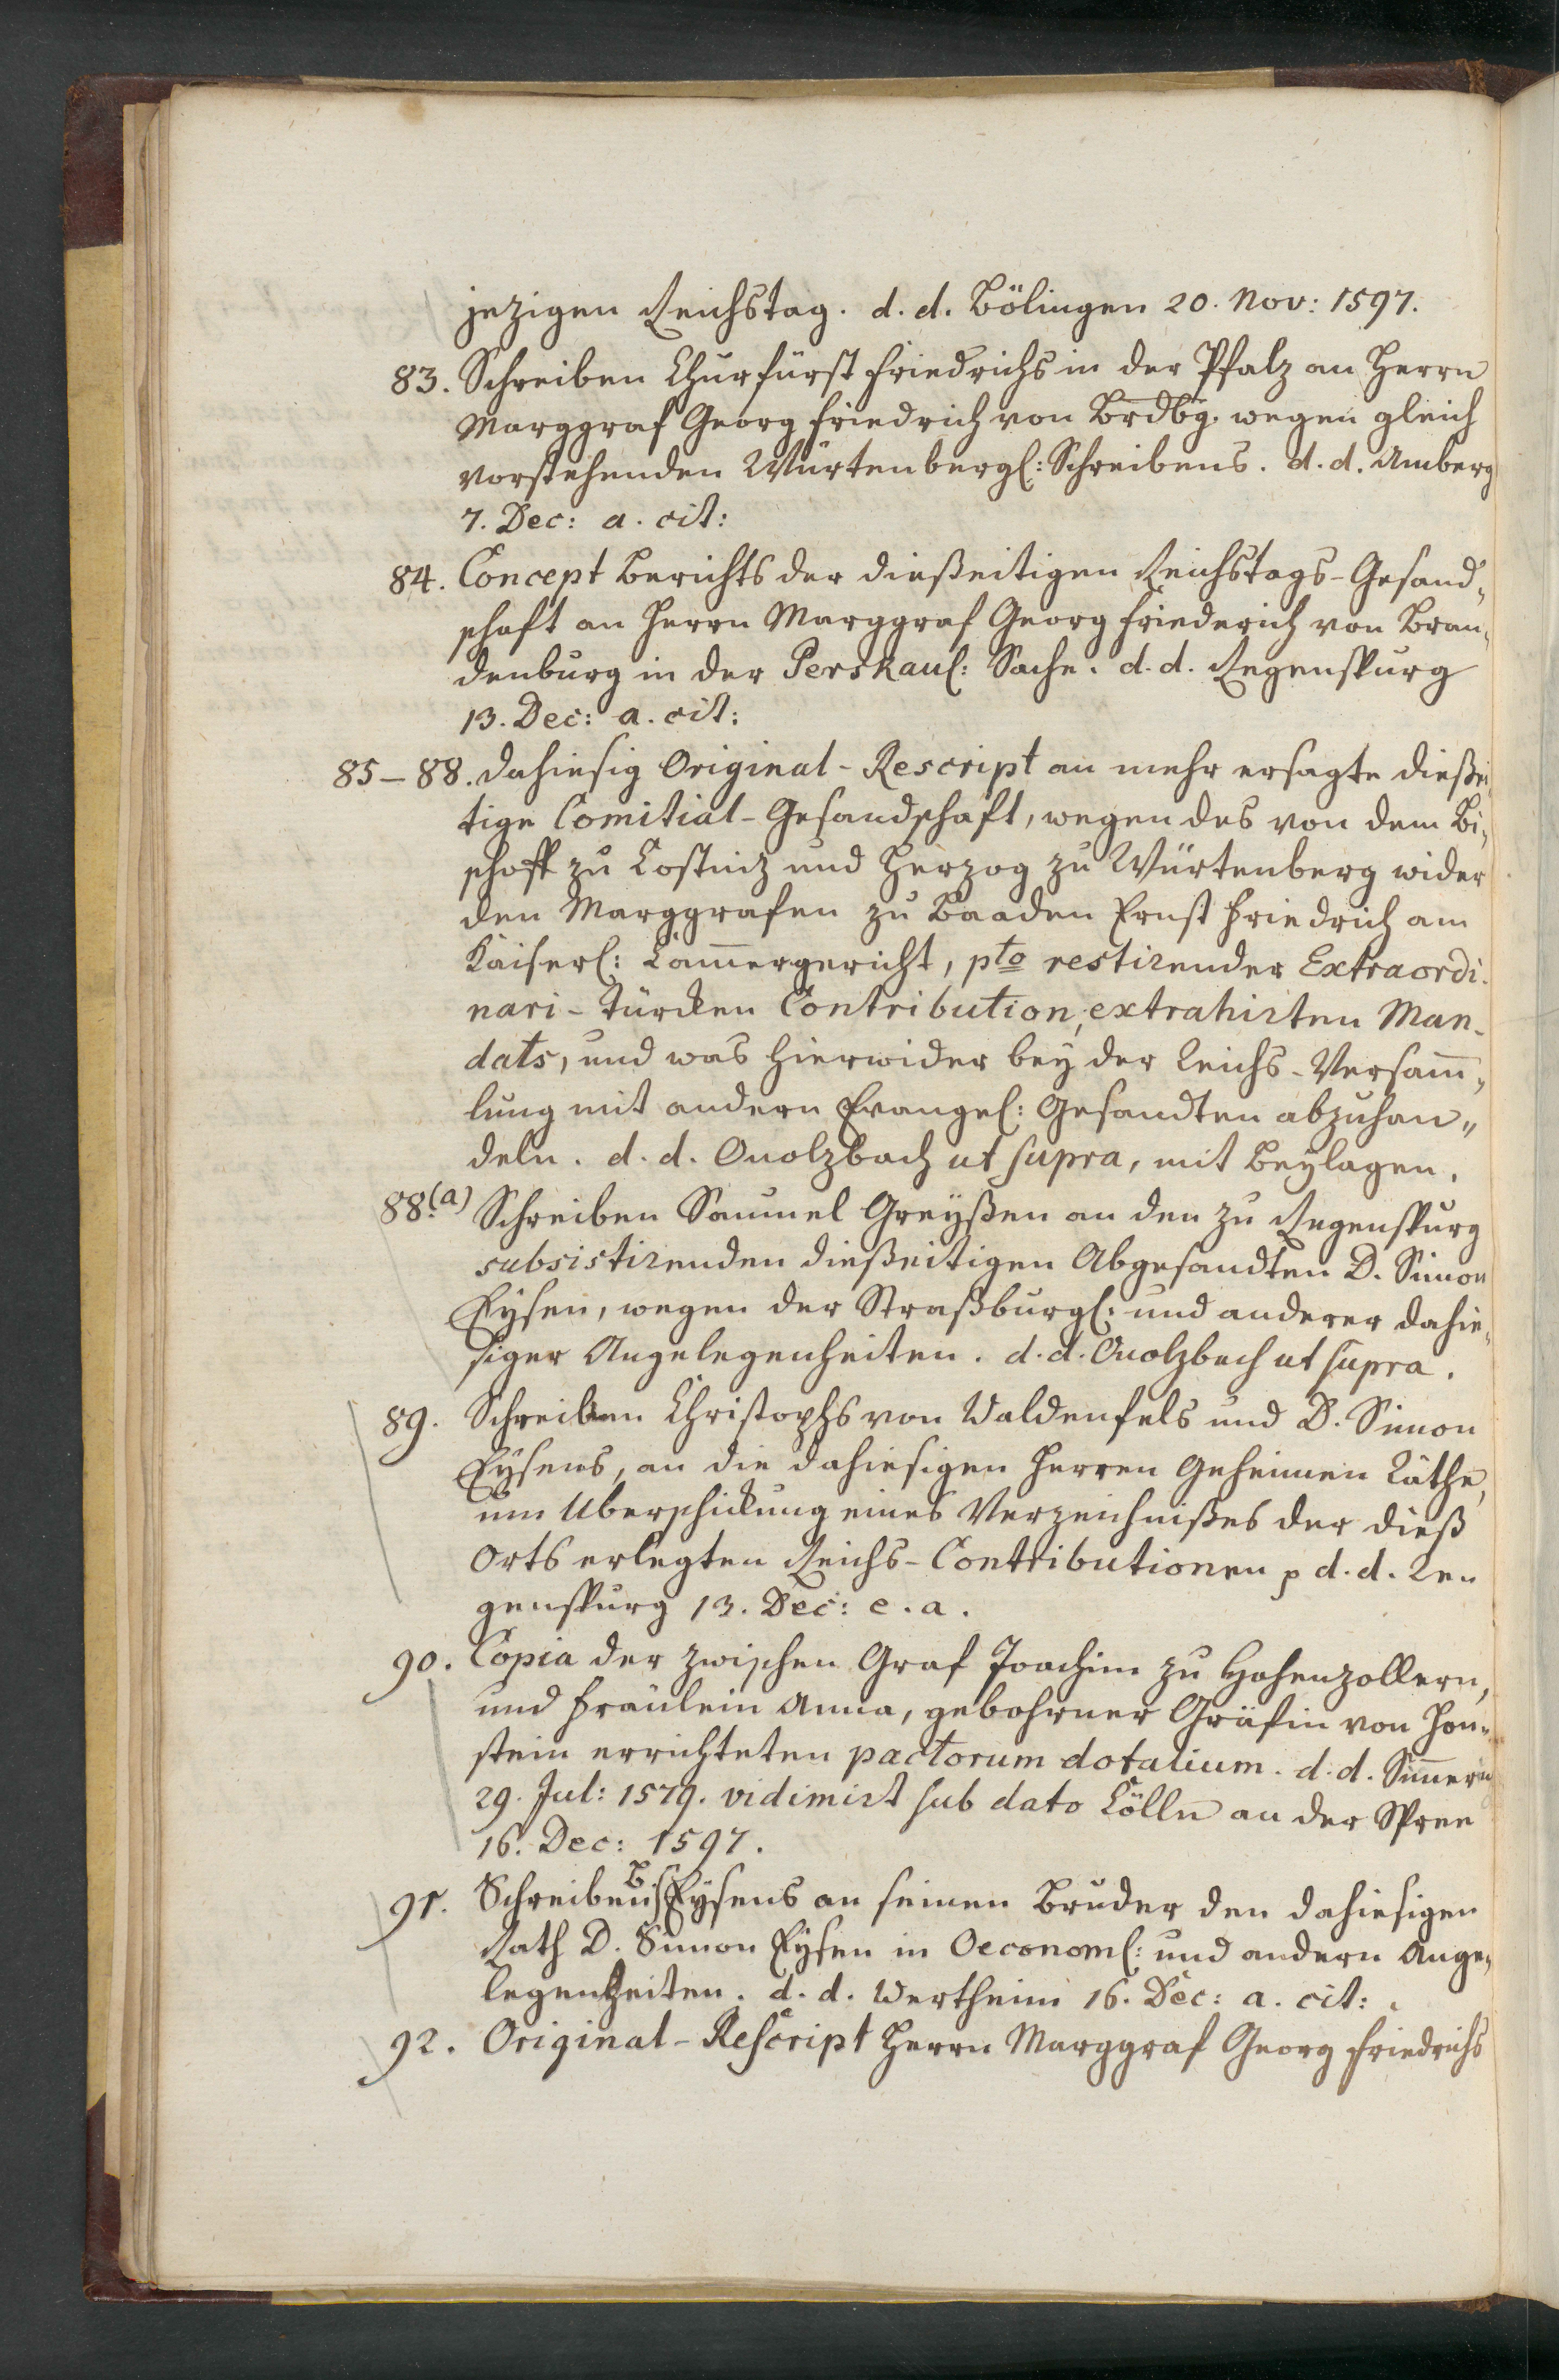 jezigen Reichstag. d. d. Bölingen 20. Nov: 1597.
83. Schreiben Churfürst Friedrichs in der Pfalz an Herrn
Marggraf Georg Friedrich von Brdbg. wegen gleich
vorstehenden Würtenbergl: Schreibens. d. d. Amberg
7. Dec: a. cit:
84. Concept Berichts der dießeitigen Reichstags-Gesand„
schaft an Herrn Marggraf Georg Friederich von Bran„
denburg in der Perskaul: Sache. d. d. Regenspurg
13. Dec: a. cit:
85–88. dahiesig Original-Rescript an mehr ersagte dießei„
tige Comitial-Gesandschaft, wegen des von dem Bi„
schoff zu Costniz und Herzog zu Würtenberg wider
den Marggrafen zu Baaden Ernst Friedrich am
Kaiserl: Cam̄ergericht, pto restirender Extraordi-
nari-Türcken Contribution, extrahirten Man-
dats, und was hierwider bey der Reichs-Versam̄„
lung mit andern Evangel: Gesandten abzuhan„
deln. d. d. Onolzbach ut supra, mit Beylagen.
88.(a) Schreiben Samuel Greyßen an den zu Regenspurg
subsistirenden dießeitigen Abgesandten D. Simon
Eysen, wegen der Straßburgl: und anderer dahie„
siger Angelegenheiten. d. d. Onolzbach ut supra.
89. Schreiben Christophs von Waldenfels und D. Simon
Eysens, an die dahiesigen Herren Geheimen Räthe,
um Uberschickung eines Verzeichnißes der dieß
Orts erlegten Reichs-Contributionen p d. d. Re„
genspurg 13. Dec: e. a.
90. Copia der zwischen Graf Joachim zu Hohenzollern,
und Fräulein Anna, gebohrner Gräfin von Hon„
stein errichteten pactorum dotalium. d. d. Sim̄ern
29. Jul: 1579. vidimirt sub dato Cölln an der Spree
16. Dec: 1597.
91. Schreiben Eysens an seinen Bruder den dahiesigen
Rath D. Simon Eysen in Oeconoml: und andern Ange„
legenheiten. d. d. Wertheim 16. Dec: a. cit:
92. Original-Rescript Herrn Marggraf Georg Friedrichs